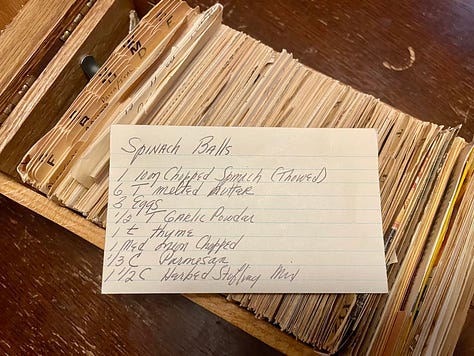 Spinach Balls
1 10oz Chopped Spinach (Thawed)
6 T melted Butter
3 Eggs
1/2 T Garlic Powder
1 t thyme
1 Med Chopped
1/3 C Parmesan
1 1/2 C Herbed Stuffing Mix